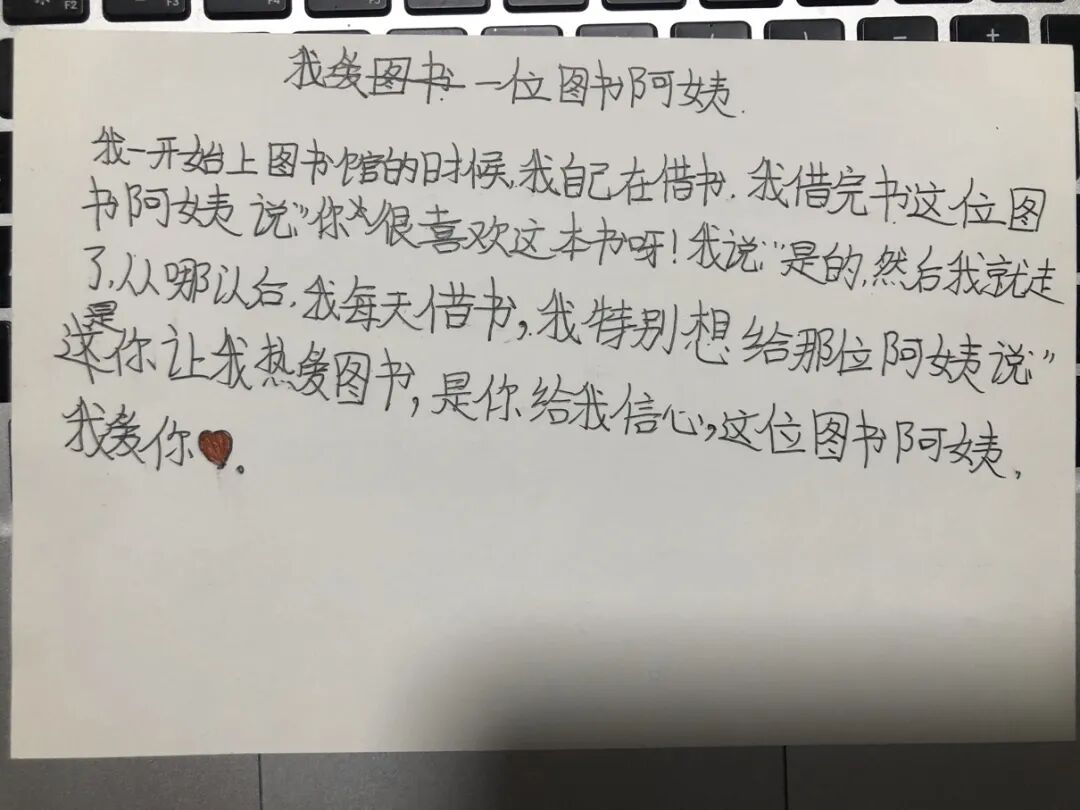 我爱图书 一位图书阿姨.
我一开始上图书馆的时候,我自己在借书.我借完书这位图
书阿姨说"你很喜欢这本书呀!我说"是的,然后我就走
了,从哪以后,我每天借书,我特别想给那位阿姨说"
是你让我热爱图书,是你给我信心,这位图书阿姨,
我爱你❤.
F2
F3
F4